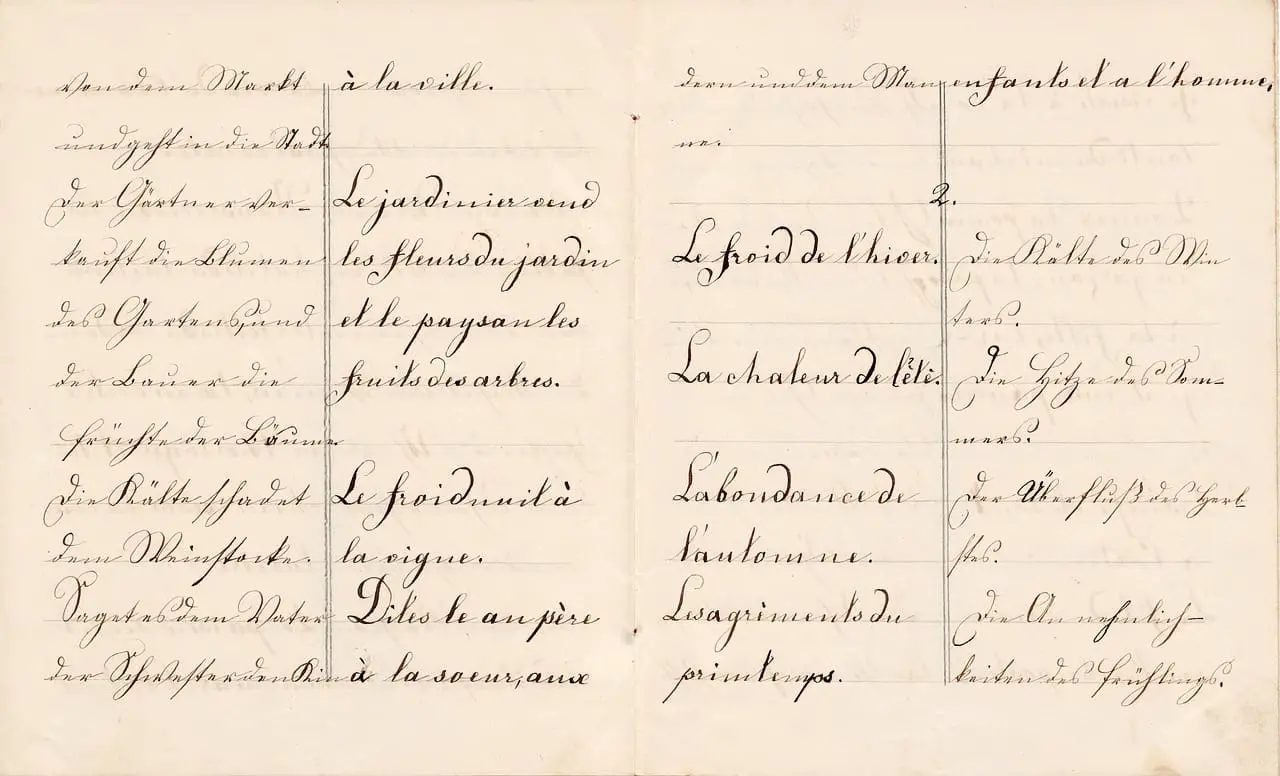 von dem Markt à la ville.
und geht in die Stadt
Der Gärtner ver- Le jardinier vend
kauft die Blumen les fleurs du jardin
des Gartens, und et le paysan les
der Bauer die fruits des arbres.
Früchte der Bäume
Die Kälte schadet Le froid nuit à
dem Weinstocke. la vigne.
Saget es dem Vater Dites le au père
der Schwester den Kin à la soeur, aux
dern und dem Man enfants et a l'homme.
ne.
2.
Le froid de l'hiver. Die Kälte des Win
ters.
La chaleur de l'étè. Die Hitze des Som-
mers.
L'abondance de Der Überfluß des Herb
l'automne. stes.
Les agrèments du Die Annehnlich-
printemps. keiten des Frühlings.